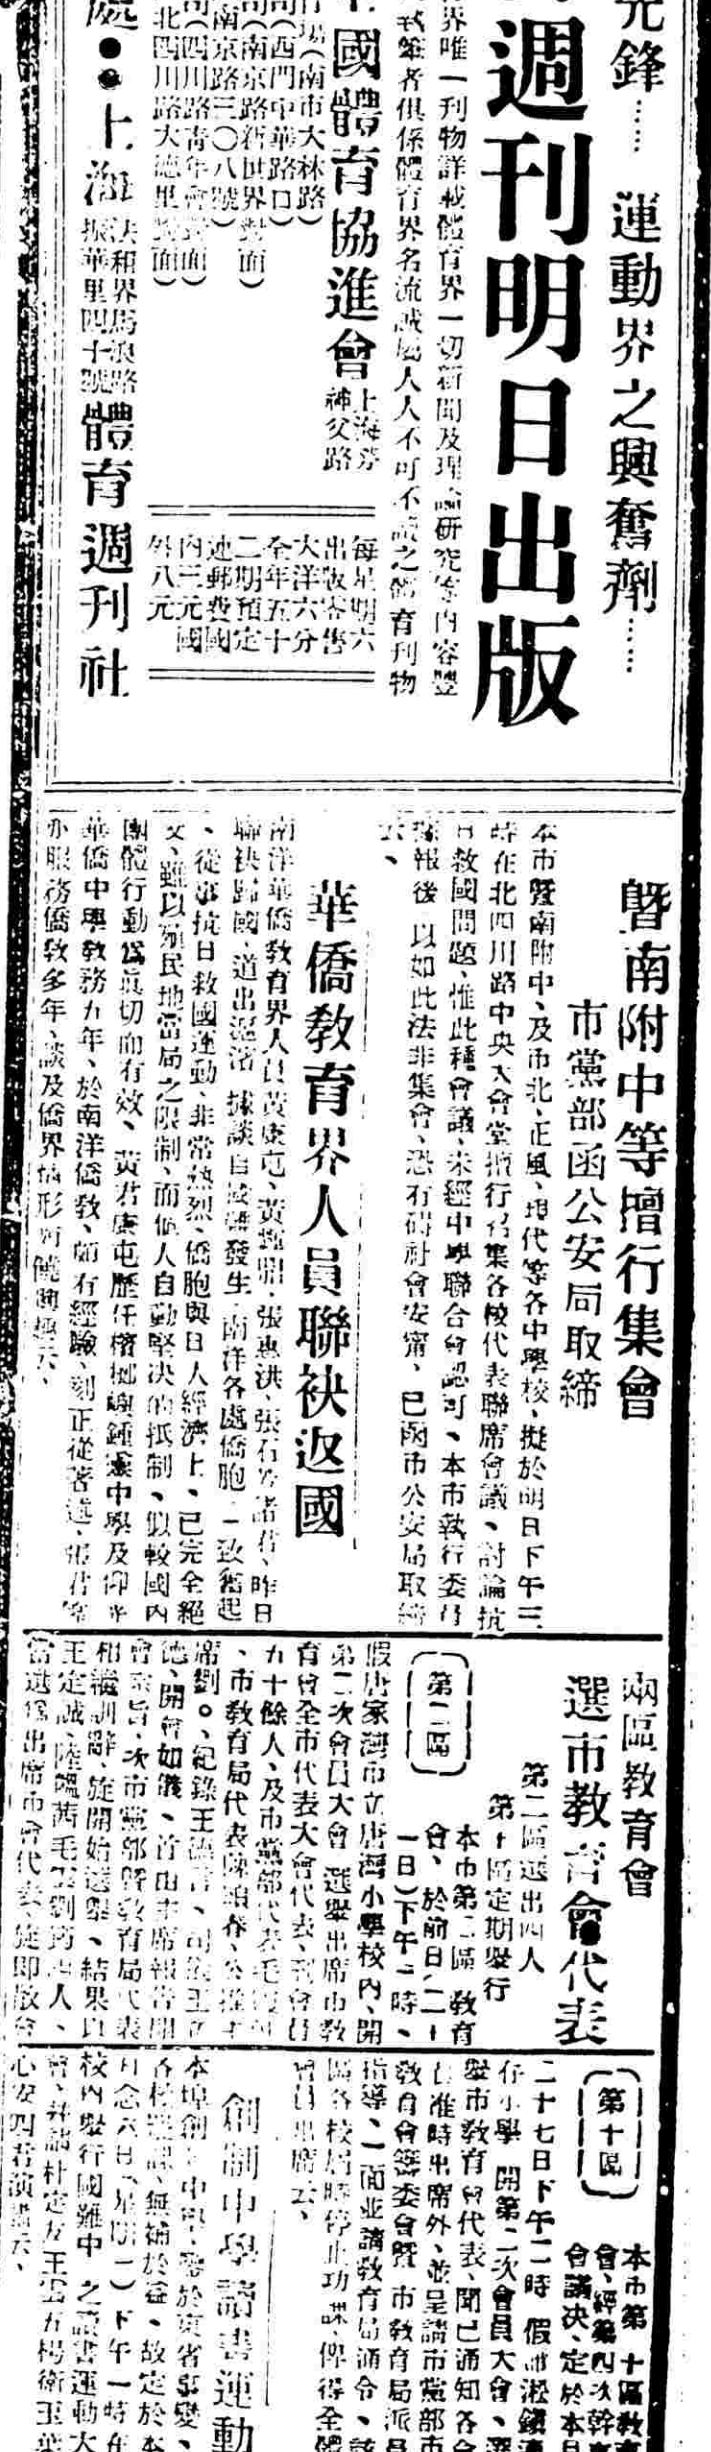 先鋒……　運動界之興奮劑……
週刊明日出版
界唯一刊物詳載體育界一切新聞及理論研究等內容豐
執筆者俱係體育界名流誠屬人人不可不讀之體育刊物
國體育協進會
上海勞
神父路
市場（南市大林路）
司（西門中華路口）
司（南京路新世界對面）
南京路三〇八號）
司（四川路青年會對面）
北四川路大德里對面）
每星期六
出版零售
大洋六分
全年五十
二期預定
連郵費國
內三元國
外八元
處：上海
法和界馬浪路
振華里四十號
體育週刊社
暨南附中等擅行集會
市黨部函公安局取締
本市暨南附中、及市北、正風、現代等各中學校、擬於明日下午三
時在北四川路中央大會堂擅行召集各校代表聯席會議、討論抗
日救國問題、惟此種會議、未經中學聯合會認可、本市執行委員
據報後　以如此法非集會、恐有碍社會安甯、已函市公安局取締
云、
華僑教育界人員聯袂返國
南洋華僑教育界人員黃康屯、黃　張惠洪、張石　諸君、昨日
聯袂歸國、道出滬濱　據談自　發生　南洋各處僑胞　一致奮起
、從事抗日救國運動、非常熱烈、僑胞與日人經濟上、已完全絕
交、雖以殖民地當局之限制、而個人自動堅决的抵制、似較國內
團體行動爲眞切而有效、黃君康屯歷任檳榔嶼鍾靈中學及仰光
華僑中學教務九年、於南洋僑教、頗有經驗、刻正從著述、張君等
亦服務僑教多年、談及僑界情形　云、
兩區教育會
選市教育會代表
第二區選出四人
第十區定期舉行
第二區
本市第二區教育
會、於前日（二十
一日）下午二時、
假唐家灣市立唐灣小學校內、開
第二次會員大會　選舉出席市教
育會全市代表大會代表、到會員
五十餘人、及市黨部代表毛
、市教育局代表陳　春、公推主
席劉。、紀錄王　、司儀王
、開會如儀、首由主席報告開
會宗旨、次市黨部暨教育局代表
相繼訓辭、旋開始選舉、結果以
王定誠、陸　茜毛　劉　四人、
當選爲出席市會代表、旋即散會
第十區
本市第十區教育
會、經第四次幹事
會議决、定於本月
二十七日下午二時　假　淞鎮
小學　開第二次會員大會、選
舉市教育會代表、聞已通知各會
員准時出席外、並呈請市黨部市
教育會籌委會暨　市教育局派員
指導、一面並請教育局通令、該
區各校屆時停止功課、俾得全體
會員出席云、
創制中學讀書運動
本埠創　中學、鑒於東省事變、
各校　課、無補於益、故定於本
月念六日（星期一）下午一時在
校內舉行國難中　之讀書運動大
會、并請朴定　王雲五楊衛玉葉
心安四君演講云、